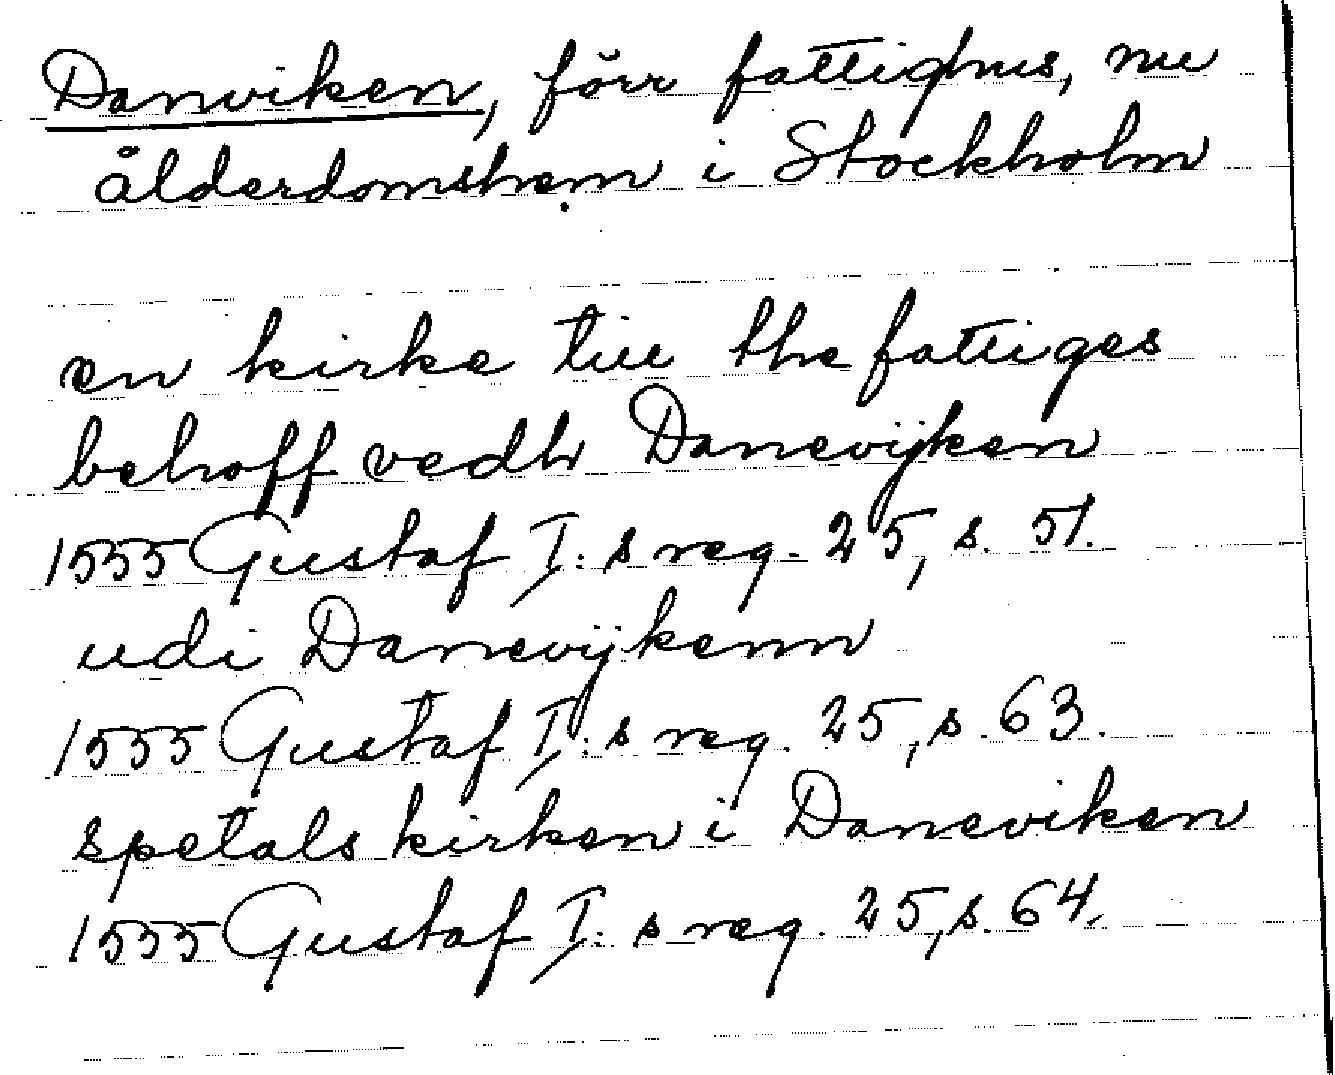 Danviken, förr fattighus, nu
ålderdomshem i Stockholm
en kirke till the fattiges
behoff vedh Danevijken
1555 Gustaf I:s reg. 25, s. 51.
udi Danevijkenn
1555 Gustaf I:s reg. 25, s. 63.
spetals kirken i Daneviken
1555 Gustaf I:s reg. 25, s. 64.